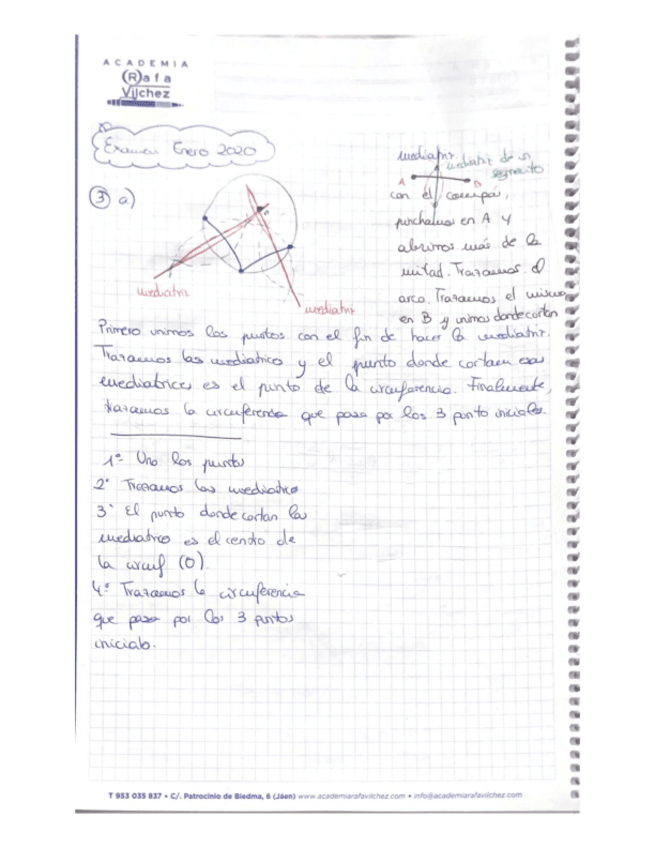 ACADEMIA
Rafa
Vílchez
Examen Enero 2020
3 a)
mediatriz
mediatriz
mediatriz
mediatriz de un
segmento
A
B
con el compás,
pinchamos en A y
abrimos más de la
mitad. Trazamos el
arco. Trazamos el mismo
en B y unimos donde cortan
Primero unimos los puntos con el fin de hacer la mediatriz.
Trazamos las mediatrices y el punto donde cortan esas
mediatrices es el punto de la circunferencia. Finalmente,
trazamos la circunferencia que pasa por los 3 punto iniciales.
1º Uno los puntos
2º Trazamos las mediatrices
3º El punto donde cortan las
mediatrices es el centro de
la circunf (O).
4º Trazamos la circunferencia
que pasa por los 3 puntos
iniciales.
T 953 035 837 • C/. Patrocinio de Biedma, 6 (Jáen) www.academiarafavilchez.com • info@academiarafavilchez.com